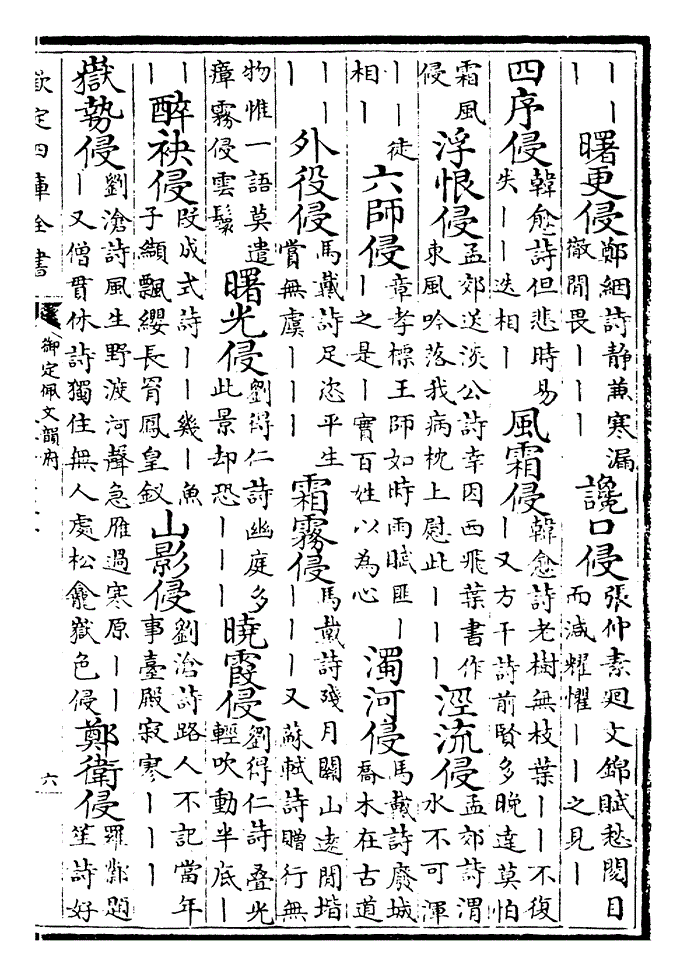 ｜｜｜曙更侵鄭絪詩靜兼寒漏徹閒畏｜｜｜讒口侵張仲素廻文錦賦愁閱目而減耀懼｜｜之見｜
四序侵韓愈詩但悲時易失｜｜迭相｜風霜侵韓愈詩老樹無枝葉｜｜不復｜又方干詩前賢多晚達莫怕
霜風侵浮恨侵孟郊送淡公詩幸因西飛葉書作東風吟落我病枕上慰此｜｜｜涇流侵孟郊詩渭水不可渾
｜｜徒相｜六師侵章孝標王師如時雨賦匪｜｜之是｜實百姓以為心濁河侵馬戴詩廢城喬木在古道
｜｜｜外役侵馬戴詩足恣平生賞無虞｜｜｜霜霧侵馬戴詩殘月關山遠閒堦｜｜｜又蘇軾詩贈行無
物惟一語莫遣瘴霧侵雲鬟曙光侵劉得仁詩幽庭多此景却恐｜｜｜曉霞侵劉得仁詩疊光輕吹動半底｜
｜｜醉袂侵段成式詩｜｜幾｜魚子纈飄纓長罥鳳皇釵山影侵劉滄詩路人不記當年事臺殿寂寒｜｜｜
嶽勢侵劉滄詩風生野渡河聲急雁過寒原｜｜｜又僧貫休詩獨住無人處松龕嶽色侵鄭衛侵羅鄴題笙詩好
欽定四庫全書
御定佩文韻府
六